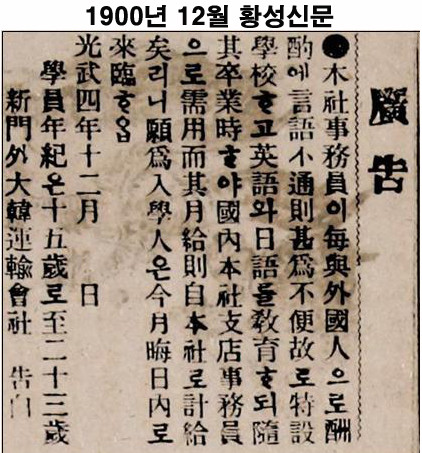 1900년 12월 황성신문
廣告
●本社事務員이每與外國人으로酬
酌에言語不通則甚爲不便故로特設
學校ᄒᆞ고英語와日語를敎育ᄒᆞ되隨
其卒業時ᄒᆞ야國內本社支店事務員
으로需用而其月給則自本社로計給
矣리니願爲入學人은今月晦日內로
來臨ᄒᆞ옴
光武四年十二月　日
學員年紀은十五歲로至二十三歲
新門外大韓運輸會社　告白